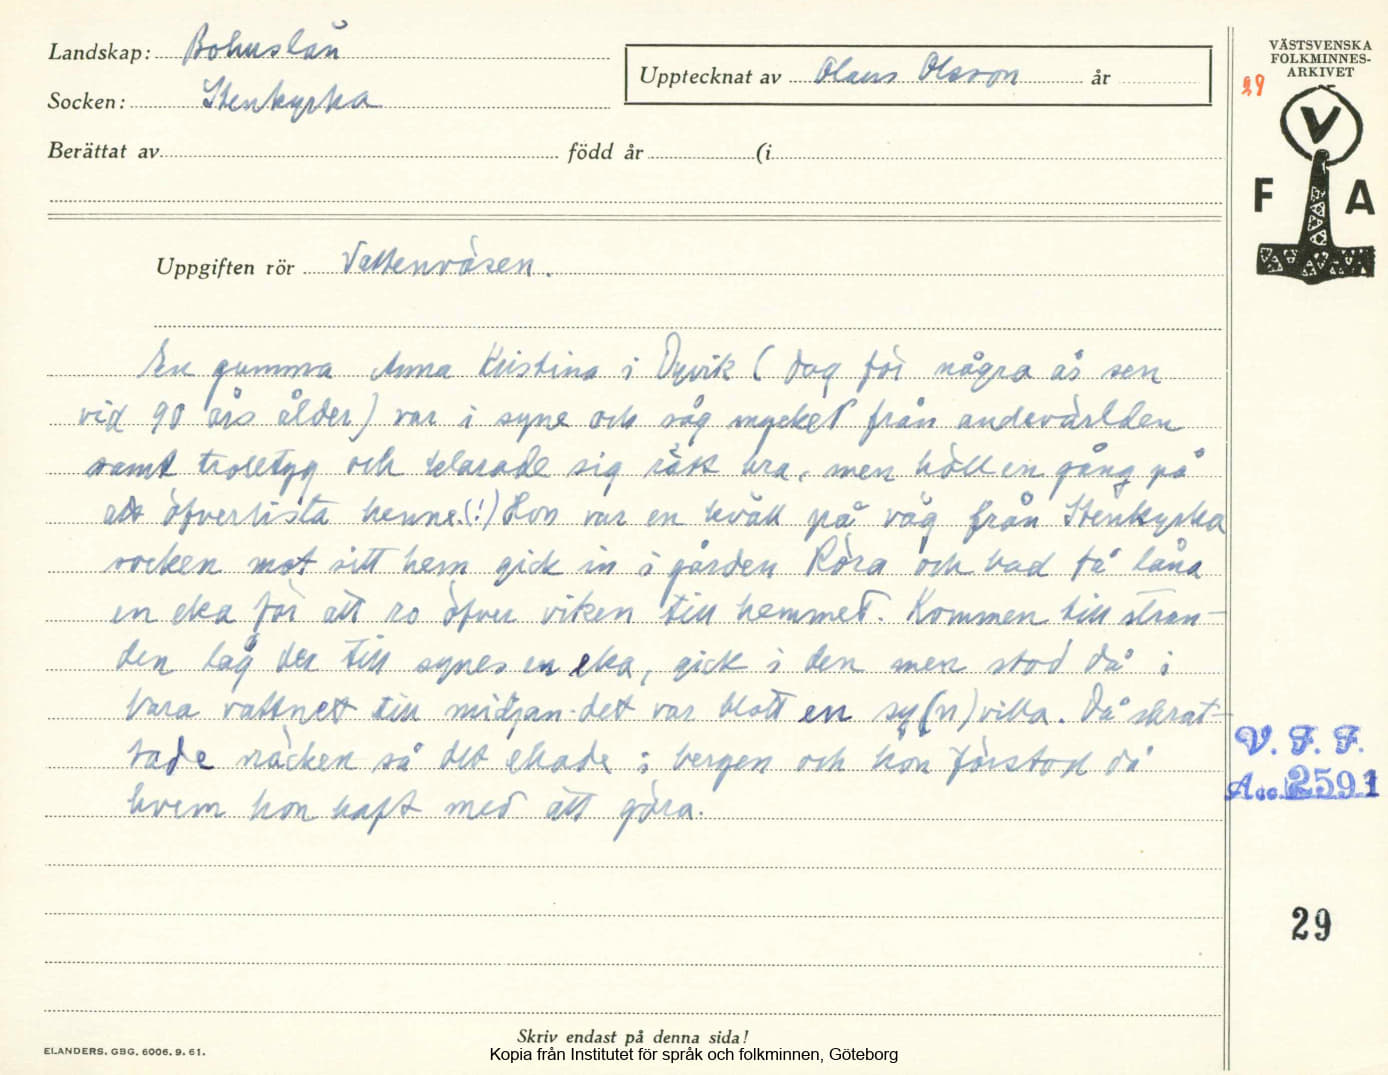 Landskap: Bohuslän
Socken: Stenkyrka
Upptecknat av Olaus Olsson år
Berättat av född år (i
VÄSTSVENSKA
FOLKMINNES-
ARKIVET
29
V
F A
Uppgiften rör Vattenväsen.
En gumma Anna Kristina i Dyvik (dog för några år sen
vid 90 års ålder) var i syne och såg mycket från andevärlden
samt trolltyg och klarade sig rätt bra, men höll en gång på
att öfverlista henne.(!) Hon var en kväll på väg från Stenkyrka
socken mot sitt hem gick in i gården Röra och bad få låna
en eka för att ro öfver viken till hemmet. Kommen till stran-
den låg der till synes en eka, gick i den men stod då i
bara vattnet till midjan - det var blott en sy(n)villa. Då skrat-
tade näcken så det ekade i bergen och hon förstod då
hvem hon haft med att göra.
V. F. F.
Acc. 2591
29
Skriv endast på denna sida!
ELANDERS. GBG. 6006. 9. 61.
Kopia från Institutet för språk och folkminnen, Göteborg